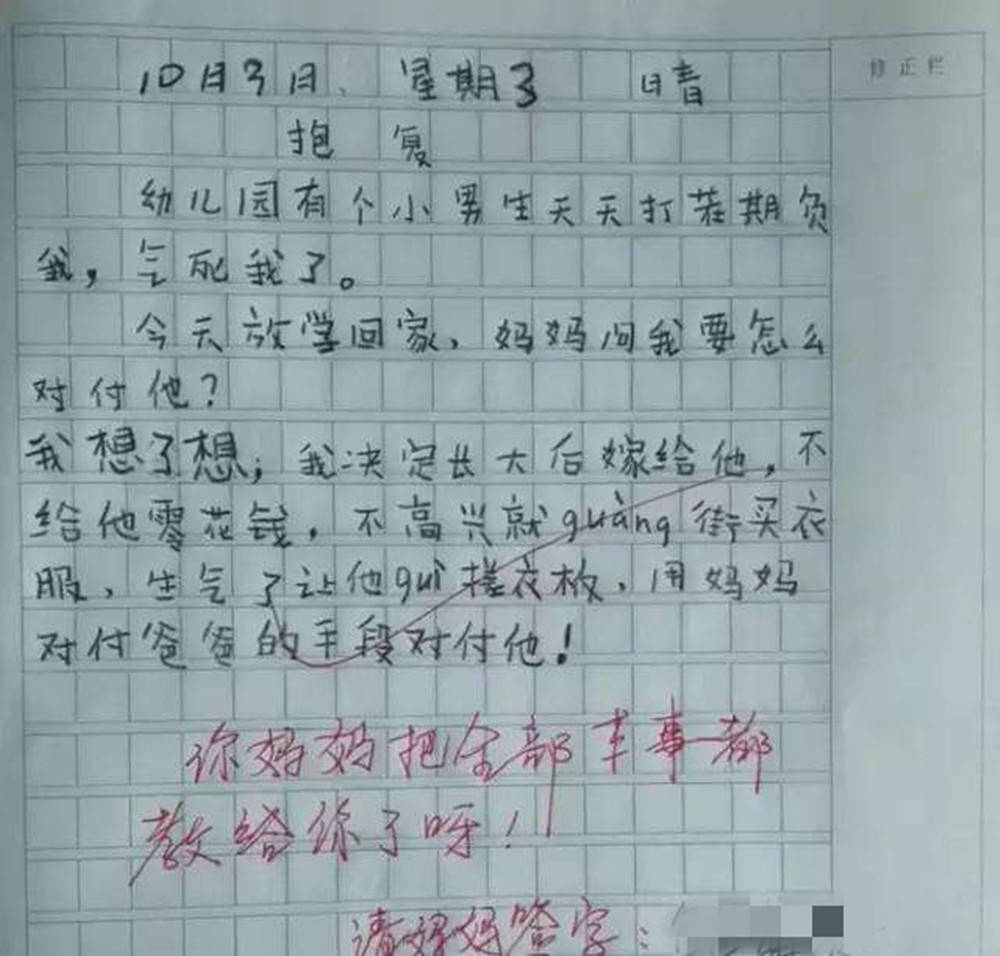 修正栏
10月3日、 星期3 晴
抱 复
幼儿园有个小男生天天打若期负
我，气死我了。
今天放学回家，妈妈问我要怎么
对付他？
我想了想，我决定长大后嫁给他，不
给他零花钱，不高兴就guàng街买衣
服，生气了让他guì搓衣板，用妈妈
对付爸爸的手段对付他！
你妈妈把全部本事都
教给你了呀！
请妈妈签字：